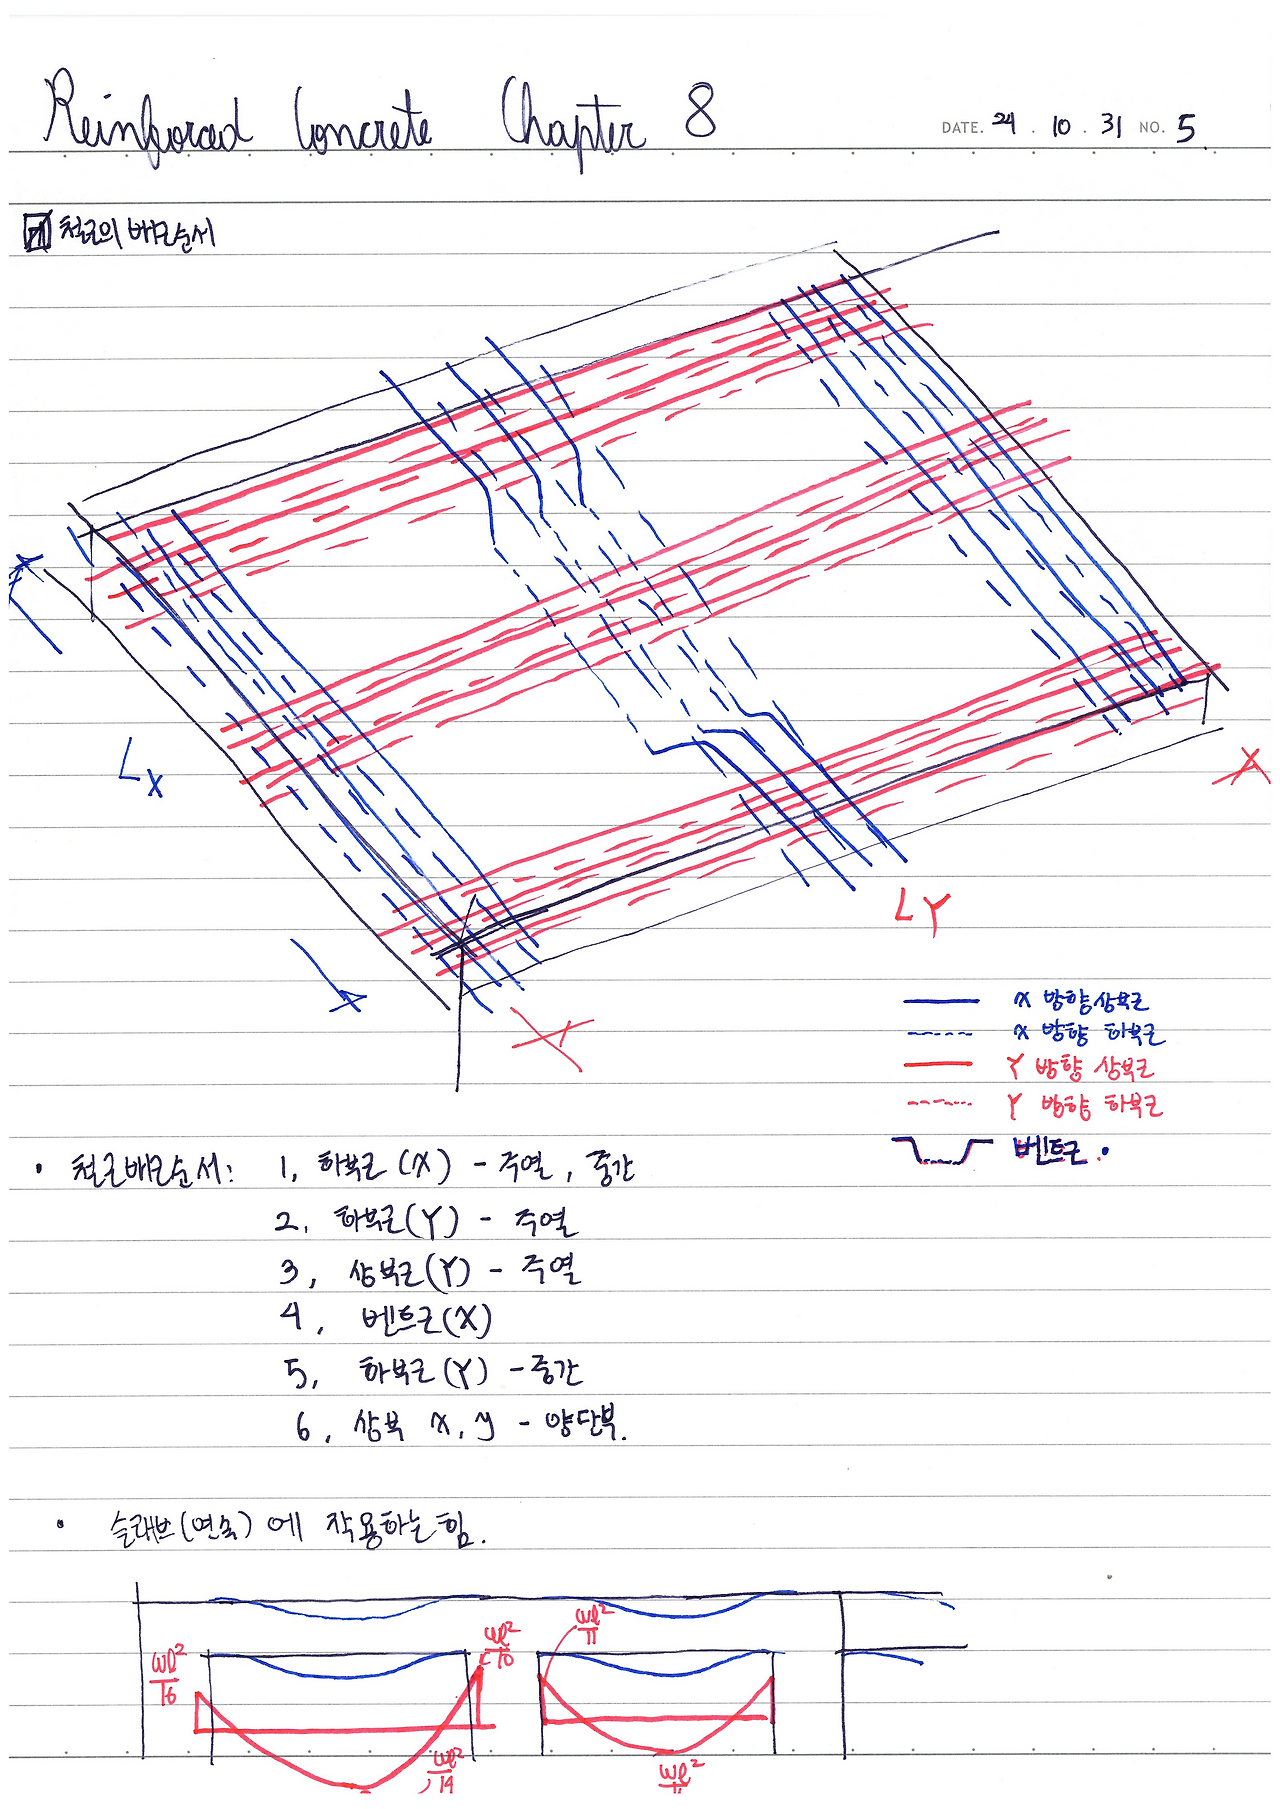 Reinforced Concrete Chapter 8
DATE. 24 . 10 . 31 NO. 5
철근의 배근순서
Lx
LY
x 방향 상부근
x 방향 하부근
Y 방향 상부근
Y 방향 하부근
벤트근.
• 철근배근순서: 1, 하부근 (X) - 주열, 중간
2, 하부근(Y) - 주열
3, 상부근(Y) - 주열
4, 벤트근(X)
5, 하부근(Y) - 중간
6, 상부 x, y - 양단부.
• 슬래브(연속)에 작용하는 힘.
wl²/16
wl²/10
wl²/11
wl²/14